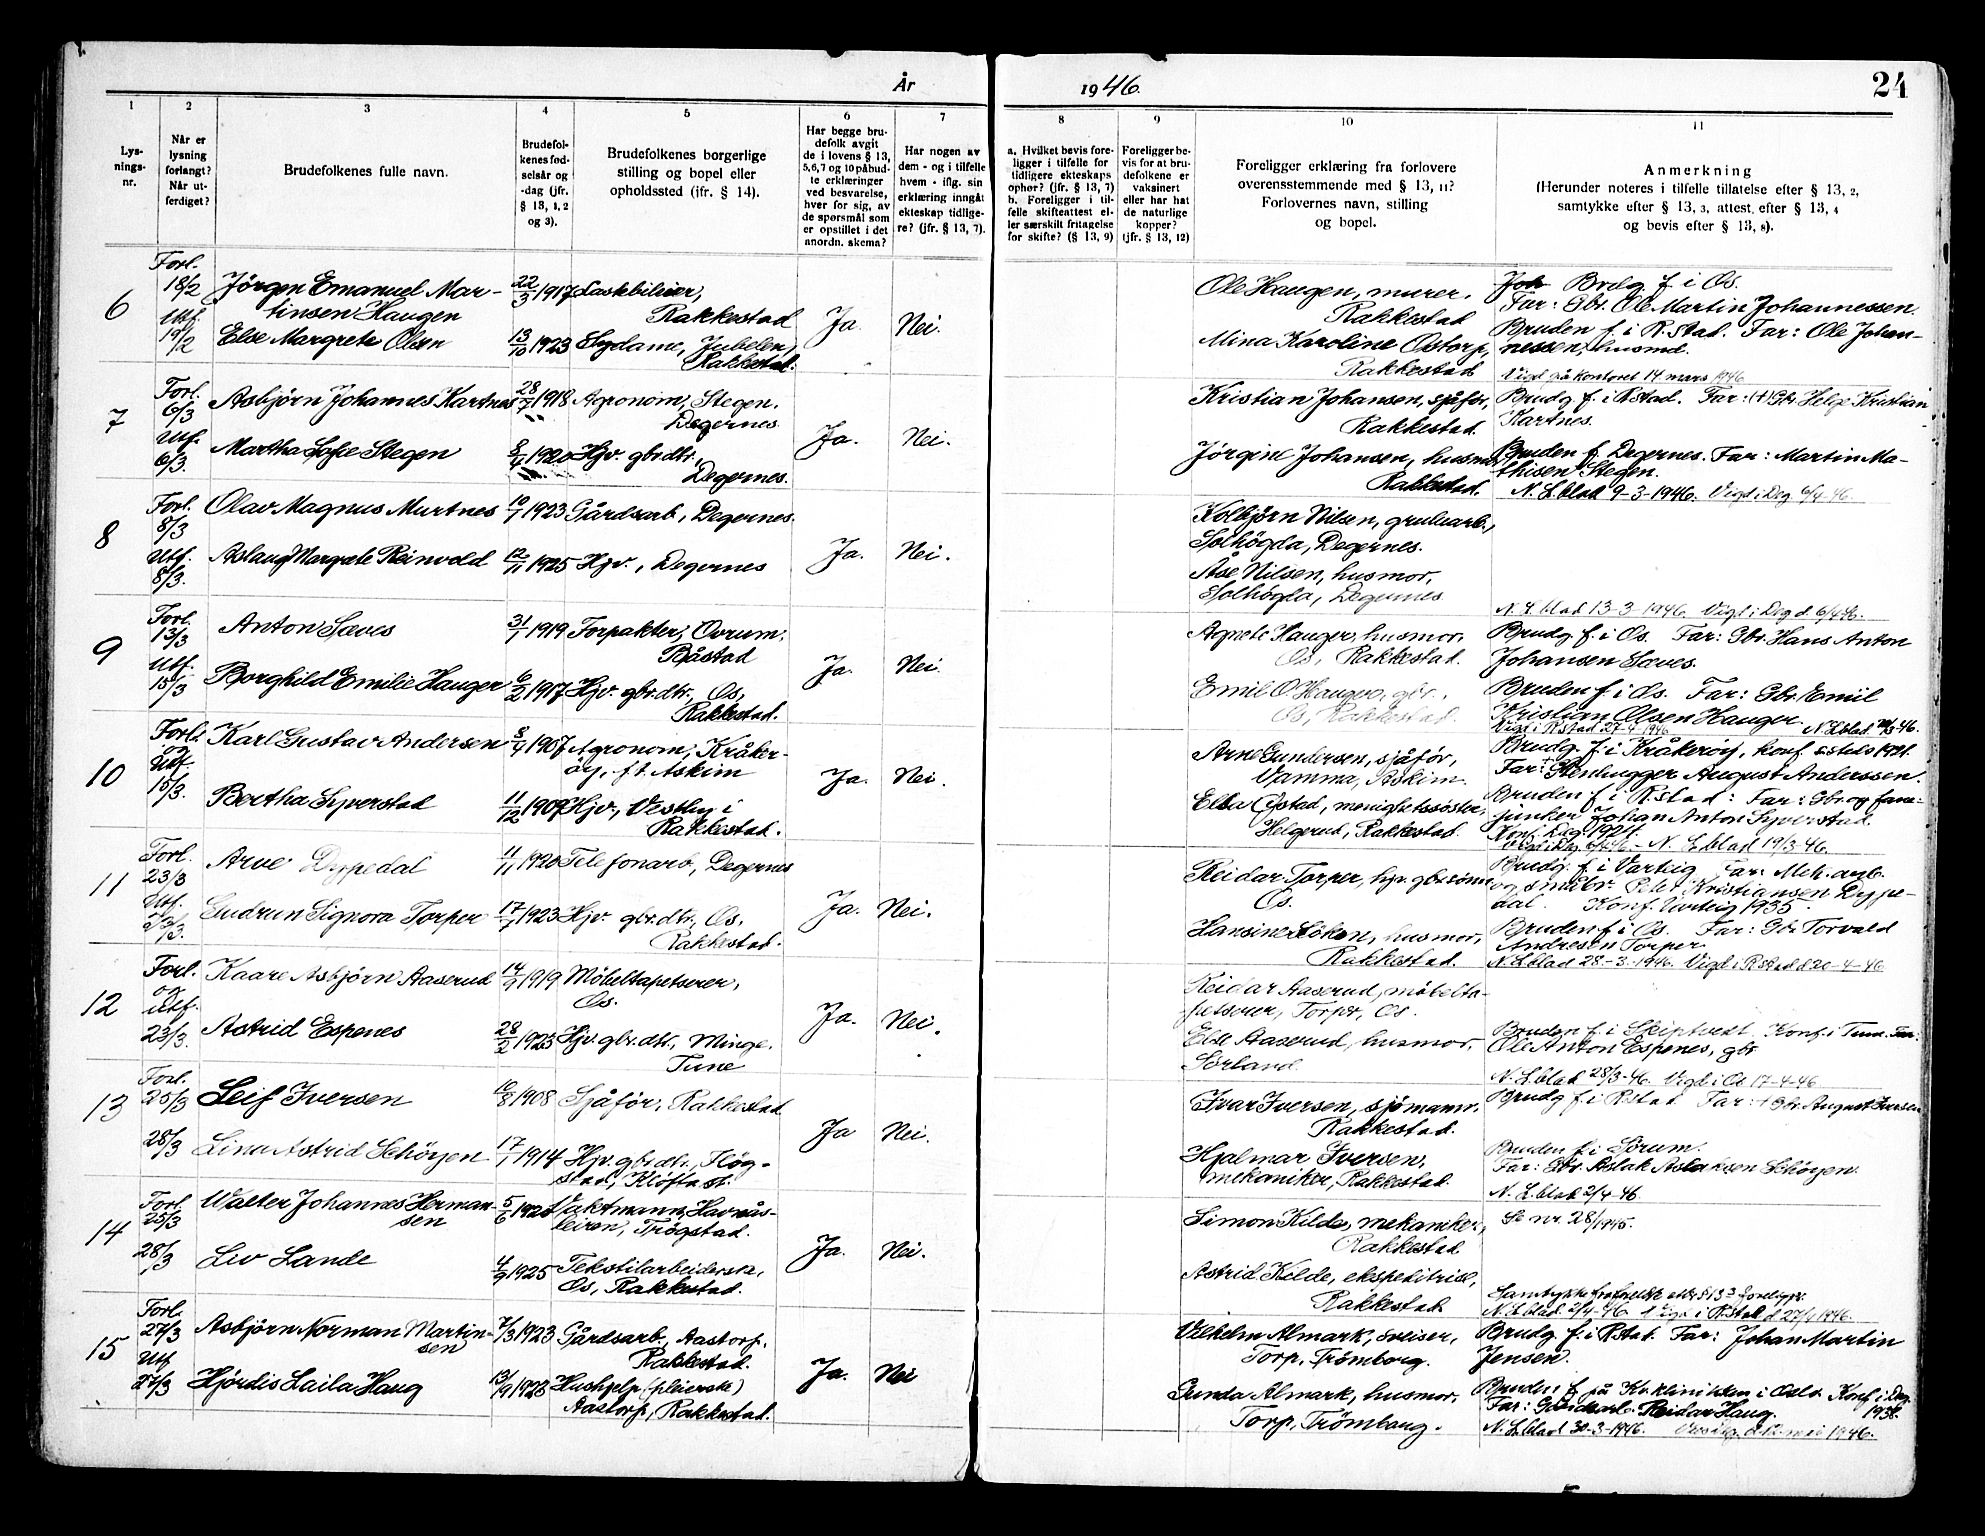 År 1946. 24
1 2 3 4 5 6 7 8 9 10 11
Lys-
nings-
nr.
Når er
lysning
forlangt?
Når ut-
ferdiget?
Brudefolkenes fulle navn.
Brudefol-
kenes fød-
selsår og
-dag (jfr.
§ 13, 1, 2
og 3).
Brudefolkenes borgerlige
stilling og bopel eller
opholdssted (ifr. § 14).
Har begge bru-
defolk avgit
de i lovens § 13,
5, 6, 7 og 10 påbud-
te erklæringer
ved besvarelse,
hver for sig, av
de spørsmål som
er opstillet i det
anordn. skema?
Har nogen av
dem - og i tilfelle
hvem - iflg. sin
erklæring inngåt
ekteskap tidlige-
re? (jfr. § 13, 7).
a. Hvilket bevis fore-
ligger i tilfelle for
tidligere ekteskaps
ophør? (jfr. § 13, 7)
b. Foreligger i til-
felle skifteattest el-
ler særskilt fritagelse
for skifte? (§ 13, 9)
Foreligger be-
vis for at bru-
defolkene er
vaksinert
eller har hat
de naturlige
kopper?
(jfr. § 13, 12)
Foreligger erklæring fra forlovere
overensstemmende med § 13, 11?
Forlovernes navn, stilling
og bopel.
Anmerkning
(Herunder noteres i tilfelle tillatelse efter § 13, 2,
samtykke efter § 13, 3, attest efter § 13, 4
og bevis efter § 13, 8).
6
Forl.
18/2
Utf.
19/2
Jörgen Emanuel Mar-
tinsen Haugen
22/3 1917
Lastebileier,
Rakkestad
Else Margrete Olsen
13/10 1923
Sydame, Jubelen,
Rakkestad.
Ja.
Nei.
Ole Haugen, murer.
Rakkestad
Mina Karoline Ostorp,
Rakkestad
Brdg. f. i Os.
Far: Gbr. Ole Martin Johannessen.
Bruden f. i R.stad. Far: Ole Johan-
nessen, husmd.
Vigd på kontoret 14 mars 1946
7
Forl.
6/3
Utf.
6/3.
Asbjörn Johannes Kartnes
28/7 1918
Agronom, Stegen.
Degernes.
Martha Sofie Stegen
8/4 1920
Hjv. gbr.dtr.,
Degernes.
Ja.
Nei.
Kristian Johansen, sjåför,
Rakkestad.
Jörgine Johansen, husmor,
Rakkestad.
Brudg. f. i R.stad. Far: (+) Gbr. Helge Kristian
Kartnes.
Bruden f. Degernes. Far: Martin Ma-
thisen Stegen.
N. L. blad 9-3-1946. Vigd i Deg 6/4-46.
8
Forl.
8/3
Utf.
8/3.
Olav Magnus Murtnes
1923
Gårdsarb., Degernes.
Aslaug Margrete Reinvold
12/11 1925
Hjv., Degernes
Ja.
Nei.
Kolbjörn Nilsen, gruvearb.,
Solhögda, Degernes.
Åse Nilsen, husmor,
Solhögda, Degernes
N. L. blad 13-3-1946. Vigd i Deg d. 6/4 46.
9
Forl.
13/3
Utf.
15/3
Anton Sæves
31/1 1919
Forpakter, Ovrum,
Båstad
Borghild Emilie Hauger
6/2 1917
Hjv. gbr.dtr., Os,
Rakkestad.
Ja.
Nei.
Agnete Hauger, husmor,
Os, Rakkestad.
Emil O Hauger, gbr.,
Os, Rakkestad.
Brudg. f. i Os. Far: Gbr. Hans Anton
Johansen Sæves.
Bruden f. i Os. Far: Gbr. Emil
Kristian Olsen Hauger.
Vigd i R.stad 27-4 1946 N. L. blad 19/3-46.
10
Forl.
og
Utf.
15/3.
Karl Gustav Andersen
1907
Agronom, Kråker-
öy, f.t. Askim
Bertha Syverstad
11/12 1907
Hjv., Vestby i
Rakkestad.
Ja.
Nei.
Arne Gundersen, sjåför,
Vamma, Askim.
Elba Öystad, menighetssöster,
Helgerud, Rakkestad.
Brudg. f. i Kråkeröy, konf. s. steds 1921.
Far: Stenhugger August Anderssen.
Bruden f. i R.stad: Far: Gbr. og fane-
junker Johan Anton Syverstad.
Konf. Deg. 1921.
Vigd i Deg. 6/4 46 - N. L. blad 19/3-46.
11
Forl.
23/3
Utf.
Arve Dypedal
11/11 1920
Telefonarb., Degernes
Gudrun Signora Torper
1923
Hjv. gbr.dtr., Os,
Rakkestad.
Ja.
Nei.
Reidar Torper, hjv. gbr.sönn
Os.
Hansine Löken, husmor,
Rakkestad.
Brudg. f. i Varteig, Far: Mek. arb.
og småbr. Peter Kristiansen Dype-
dal. Konf. Varteig 1935.
Bruden f. i Os. Far: Gbr. Torvald
Andresen Torper.
N. L. blad 28-3-1946. Vigd i R.stad d 20-4-46
12
Forl.
og
utf.
23/3.
Kaare Asbjörn Aaserud
1919
Möbeltapetserer,
Os.
Astrid Espenes
28/2 1923
Hjv. gbr.dtr., Minge,
Tune
Ja.
Nei.
Reidar Aaserud, möbelta-
petserer, Torper, Os.
Else Aaserud, husmor,
Sörland.
Bruden f. i Skiptvedt. Konf. i Tune. Far:
Ole Anton Espenes, gbr.
N. L. blad 28/3-46. Vigd i Os 17-4-46.
13
Forl.
25/3
28/3
Leif Iversen
1908
Sjåför, Rakkestad
Lina Astrid Schörjen
17/1 1914
Hjv. gbr.dtr., Flög-
stad, Klöfta st.
Ja
Nei.
Ivar Iversen, sjömann,
Rakkestad.
Hjalmar Iversen,
mekaniker, Rakkestad.
Brudg f. i R.stad. Far: + Gbr. August Iversen
Bruden f. i Sörum.
Far: Gbr. Aslak Aslaksen Schörjen.
N. L. blad 2/4-46.
14
Forl.
25/3
28/3
Walter Johannes Herman-
sen
5/6
Vaktmann, Havnås-
leiren, Trögstad.
Liv Lande
4/9 1925
Tekstilarbeiderske,
Os, Rakkestad.
Ja.
Nei.
Simon Kilde, mekaniker,
Rakkestad
Astrid Kilde, ekspeditrise,
Rakkestad
Se nr. 28/1945.
N. L. blad. 2/4-46. Vigd i R.stad d 27/4 1946.
15
Forl.
27/3
Utf
27/3
Asbjörn Norman Martin-
sen
7/3 1923
Gårdsarb., Aastorp.
Rakkestad.
Hjördis Laila Haug
Hushjelp (pleierske)
Aastorp, Rakkestad.
Ja.
Nei
Vilhelm Almark, sveiser,
Torp, Trömborg.
Gunda Almark, husmor,
Torp, Trömborg.
Brudg. f. i R.stad. Far: Johan Martin
Jensen.
Bruden f. på Kv.klinikken i Oslo. Konf. i Deg.
1938.
Far: Gårdsarb. Reidar Haug.
N. L. blad 30-3-1946.